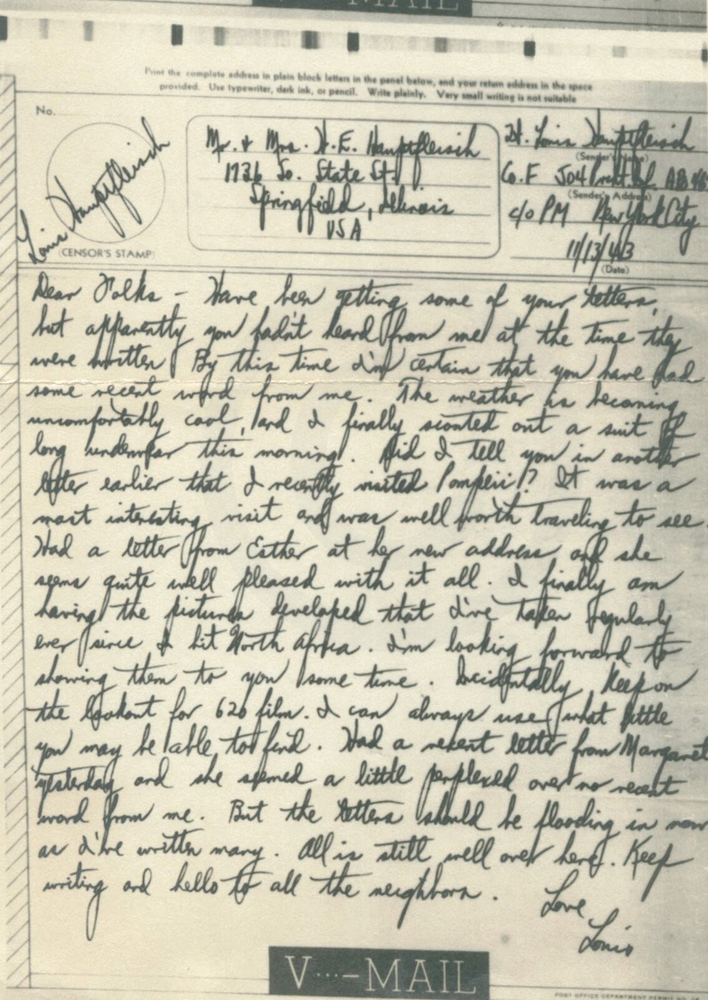 MAIL
Print the complete address in plain block letters in the panel below, and your return address in the space
provided. Use typewriter, dark ink, or pencil. Write plainly. Very small writing is not suitable
No.
Louis Hauptfleisch
(CENSOR'S STAMP)
Mr. & Mrs. W. E. Hauptfleisch
1736 So. State St.
Springfield, Illinois
USA
Lt. Louis Hauptfleisch
(Sender's Name)
Co. F 504 Prcht Inf.
(Sender's Address)
c/o PM New York City
11/13/43
(Date)
Dear Folks – Have been getting some of your letters,
but apparently you hadn't heard from me at the time they
were written. By this time I'm certain that you have had
some recent word from me. The weather is becoming
uncomfortably cool, and I finally scouted out a suit of
long underwear this morning. Did I tell you in another
letter earlier that I recently visited Pompeii!? It was a
most interesting visit and was well worth traveling to see.
Had a letter from Esther at her new address and she
seems quite well pleased with it all. I finally am
having the pictures developed that I've taken regularly
ever since I hit North Africa. I'm looking forward to
showing them to you some time. Incidentally, keep on
the lookout for 620 film. I can always use what little
you may be able to find. Had a recent letter from Margaret
yesterday and she seemed a little perplexed over no recent
word from me. But the letters should be flooding in now
as I've written many. All is still well over here. Keep
writing and hello to all the neighbors.
Love,
Louis
V···–MAIL
POST OFFICE DEPARTMENT PERMIT NO.